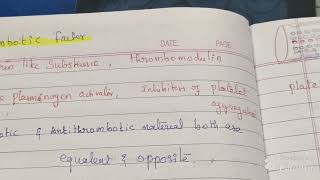 mbotic factor
DATE PAGE
rin like Substance, thrombomodulin
plasminogen activator, Inhibition of platelet plate
aggregation
otic & Antithrombotic material both are
equalent & opposite.